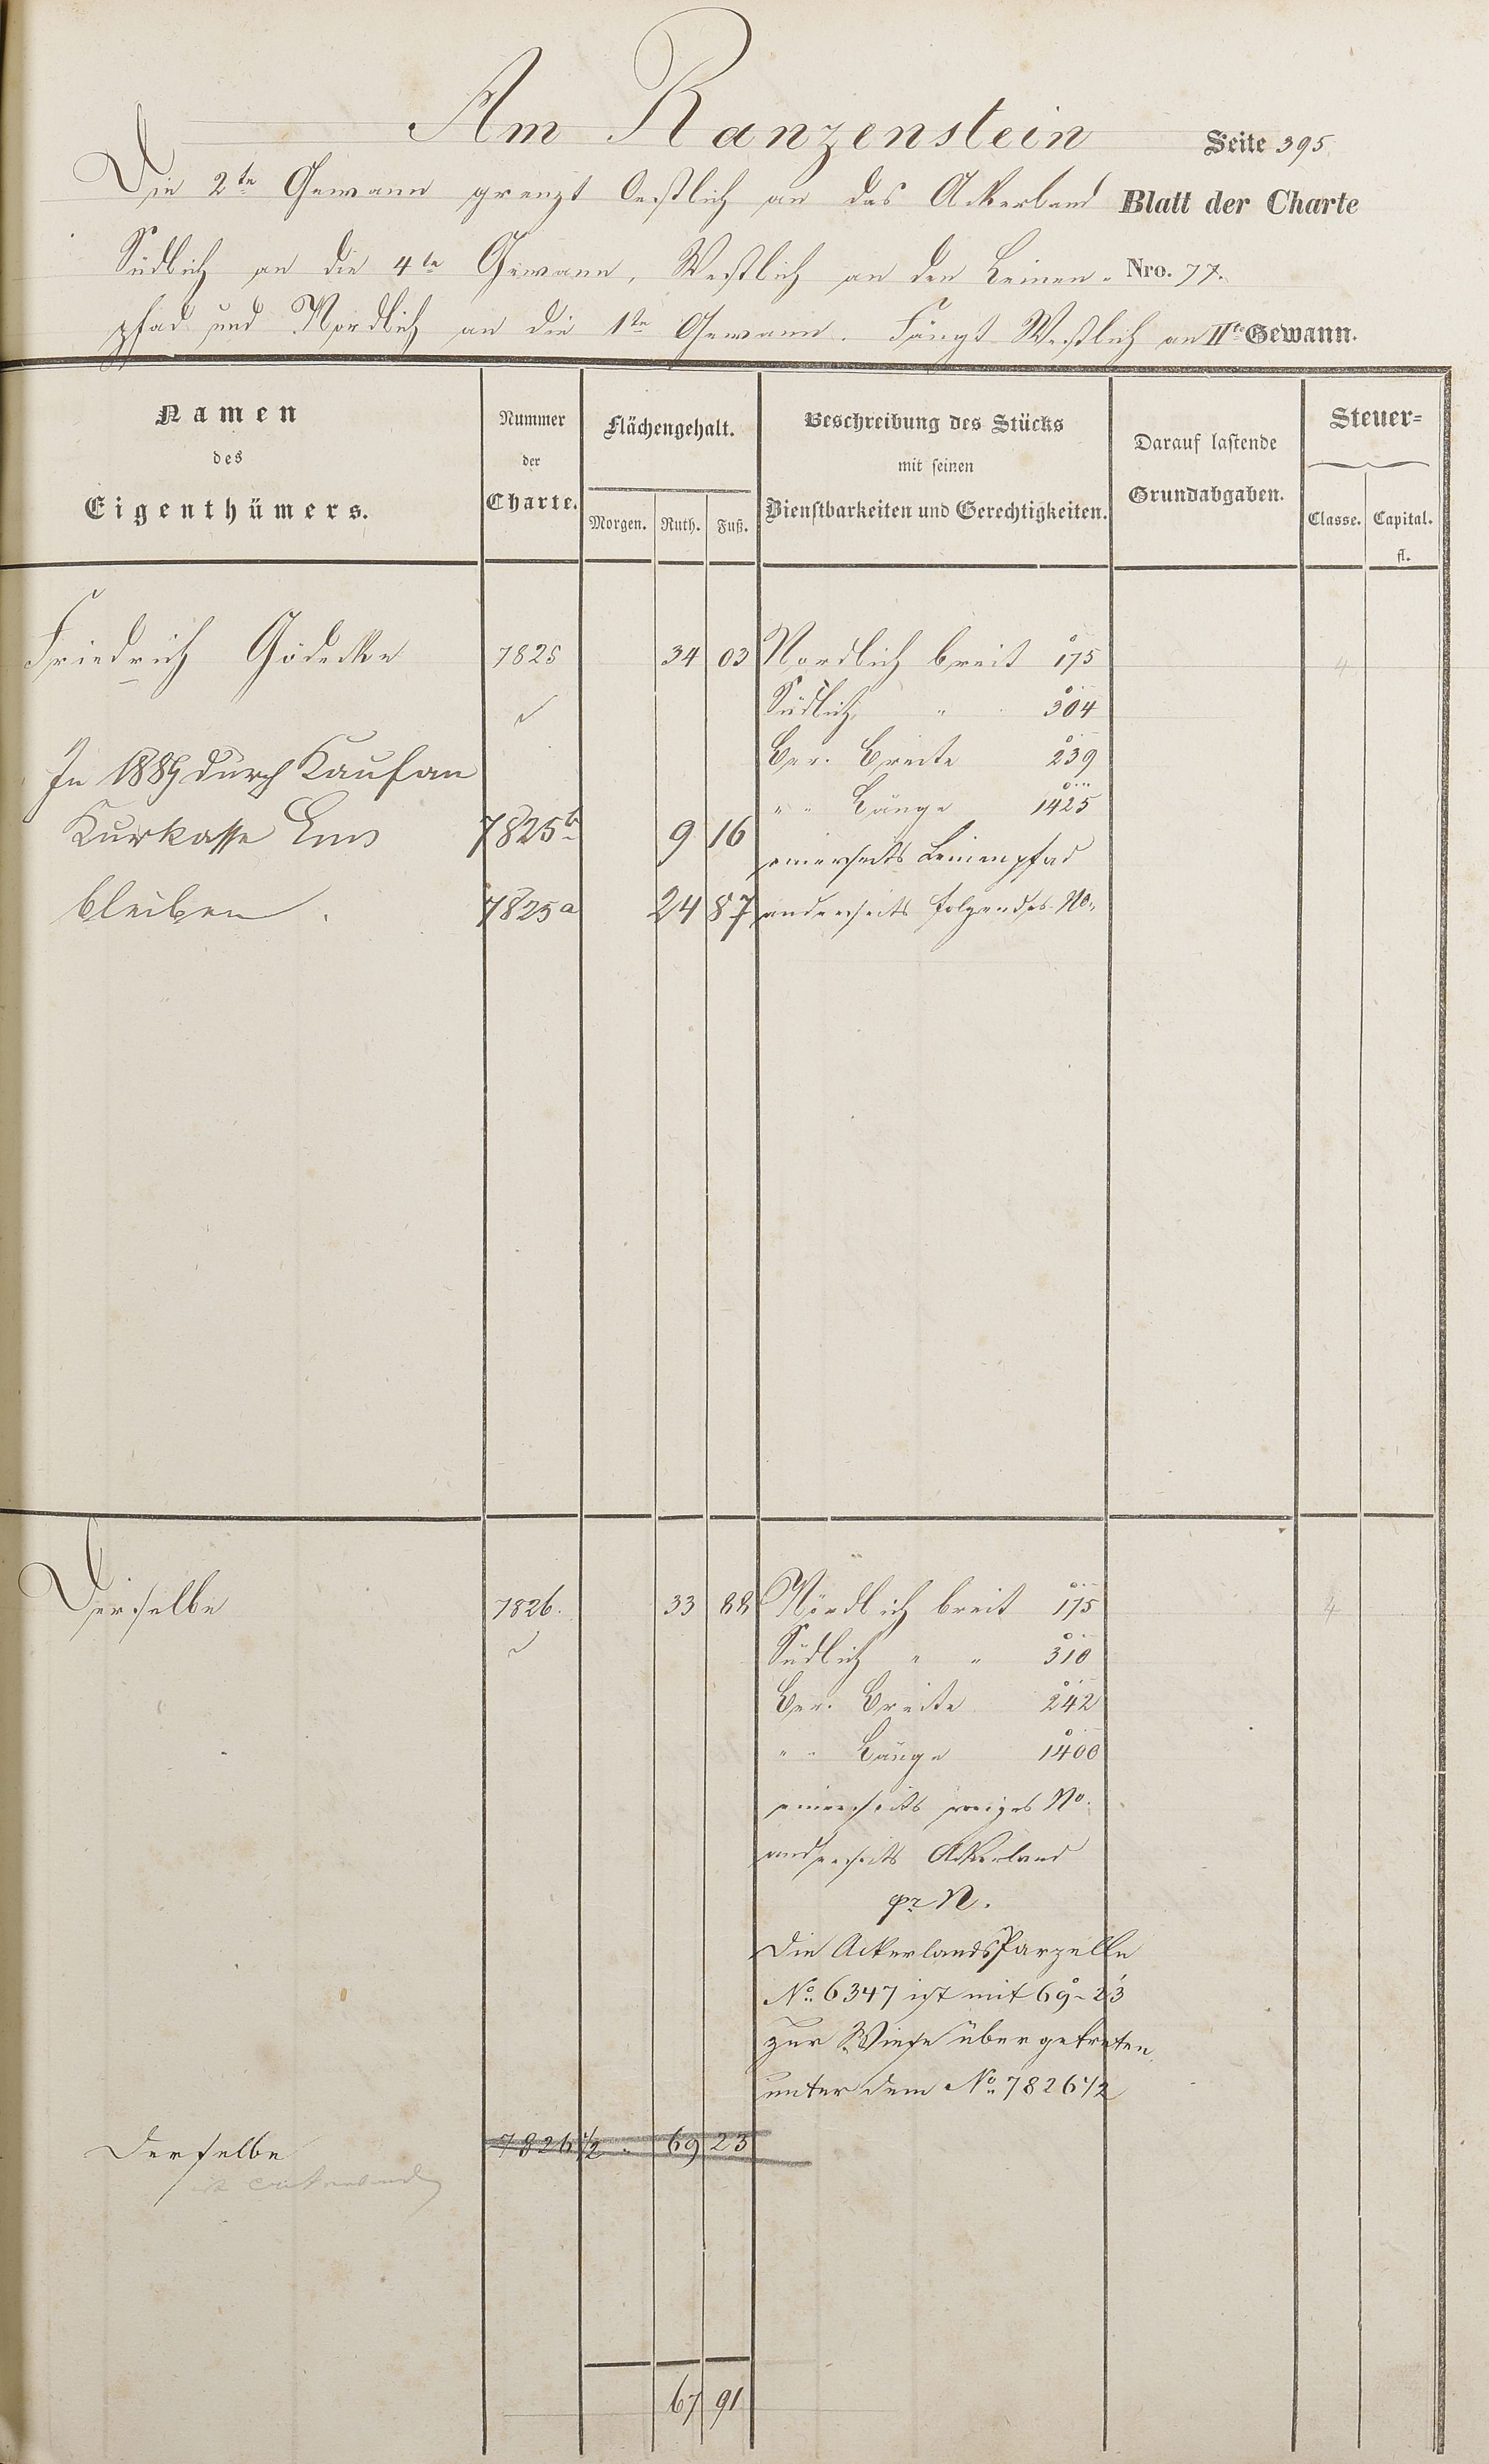 Am Ranzenstein
Seite 395
Die 2te Gewann grenzt Oestlich an das Ackerland
Blatt der Charte
Südlich an die 4te Gewann, Westlich an den Leinen-
Nro. 77.
pfad und Nordlich an die 1te Gewann. Fängt Westlich an
IIte Gewann.
Namen
des
Eigenthümers.
Nummer
der
Charte.
Flächengehalt.
Morgen. Ruth. Fuß.
Beschreibung des Stücks
mit seinen
Dienstbarkeiten und Gerechtigkeiten.
Darauf lastende
Grundabgaben.
Steuer=
Classe. Capital.
fl.
Friedrich Gödecke 7825 34 03 Nordlich breit 175 4
Südlich " 304
Ber. Breite 239
In 1889 durch Kauf an
" " Länge 1425
Kurkasse Ems 7825b 9 16
einerseits Leinenpfad
bleiben. 7825a 24 87 anderseits folgendes No.
Derselbe 7826. 33 88 Nördlich breit 175 4
Südlich " " 310
Ber. Breite 242
" " Länge 1400
einerseits voriges No.
anderseits Ackerland
pr N.
Die Ackerlands Parzelle
No. 6347 ist mit 69° 23'
zur Wiese übergetreten
unter dem No. 7826 1/2
Derselbe 7826 1/2 " 69 23
67 91